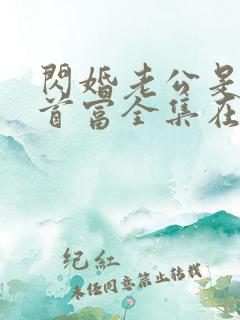 閃婚老公是
首富全集在
纪紅
未经同意禁止转载